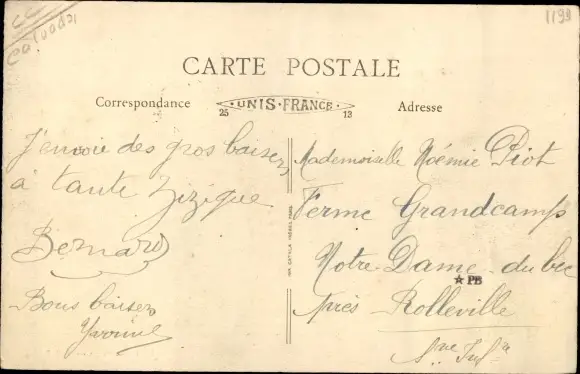 CC
Calvados
1199
CARTE POSTALE
Correspondance
UNIS-FRANCE
25 13
Adresse
J'envoie des gros baisers
à tante Zizique
Bernard
Bons baisers
Yvonne
IMP. CATALA FRÈRES PARIS
Mademoiselle Noémie Piot
Ferme Grandcamp
Notre Dame du bec
★ PB
Près Rolleville
Sne Infre